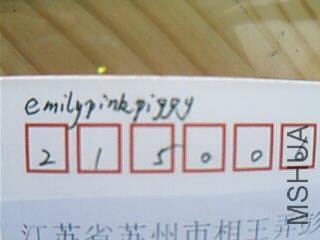 emilypinkpiggy
215000
江苏省苏州市相王弄彭
MSHUA